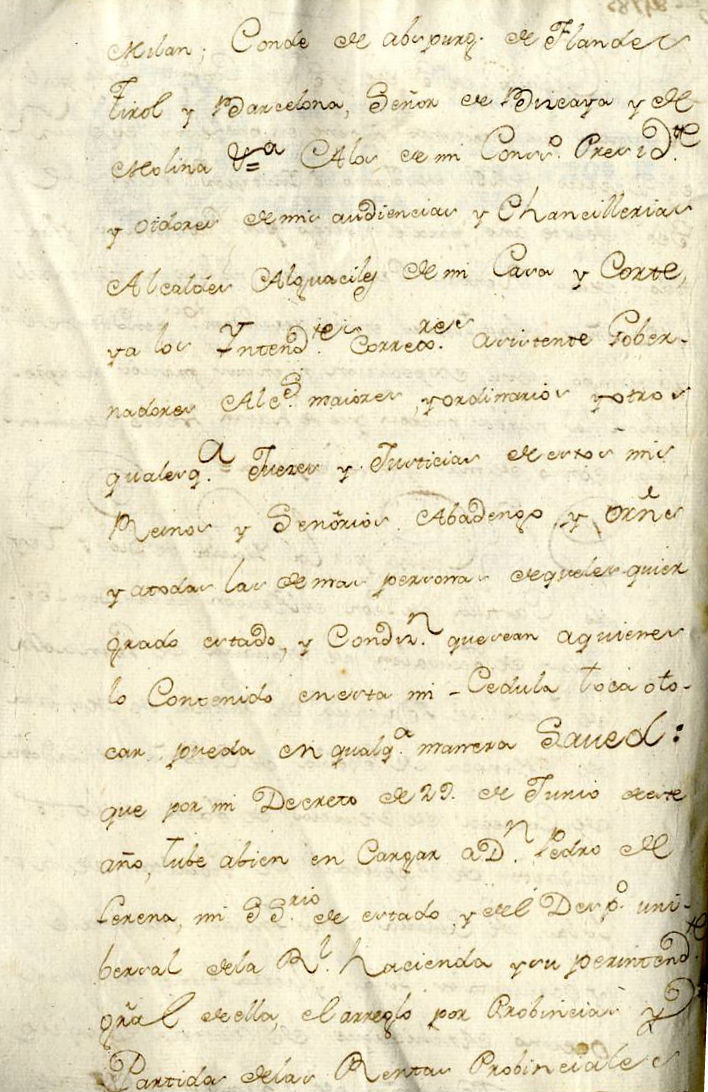 Milan; Conde de abspurg. de Flandes
Tirol y Barcelona, Señor de Viscaya y de
Molina &ª Alos de mi Consº. Presidte.
y oidores de mis audiencias y Chancillerias
Alcaldes Alguaciles de mi Casa y Corte,
ya los Yntendtes. Correxores. asistente Gober-
nadores Alces. maiores, y ordinarios y otros
qualesqª. Jueces y Justicias de estos mis
Reinos y Señorios Abadengo, y Orñes
y atodas las demas personas de queles quier
grado estado, y Condizn. que sean aquienes
lo Contenido en esta mi - Cedula toca oto-
car pueda en qualqª. manera Saved:
que por mi Decreto de 29. de Junio de este
año, tube abien en Cargar a Dn. Pedro de
Lerena, mi SSrio. de estado, y del Despº. uni-
bersal dela Rl. hacienda y su perintendte.
gral. de ella, el arreglo por Probincias y
Partida delas Rentas Probinciales